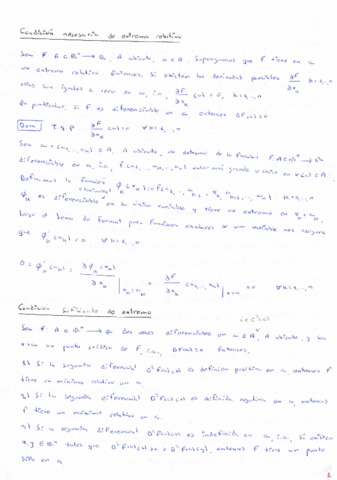 Condición necesaria de extremo relativo
Sea f: A ⊂ ℝⁿ → ℝ, A abierto, a ∈ A. Supongamos que f tiene en a
un extremo relativo. Entonces, si existen las derivadas parciales ∂f/∂xₖ k=1,..,n
estas son iguales a cero en a, i.e., ∂f/∂xₖ (a) = 0, k=1,..,n
En particular, si f es diferenciable en a, entonces Df(a)=0
Dem T.q.p ∂f/∂xₖ (a)=0 ∀k=1,..,n
Sea a = (a₁,..,aₙ) ∈ A, A abierto, un extremo de la función f: A ⊂ ℝⁿ → ℝ
diferenciable en a, i.e,
Definimos la función
es diferenciable en su única variable y tiene un extremo en xₖ = aₖ,
luego el teorema de Fermat para funciones escalares de una variable nos asegura
que φₖ'(aₖ)=0 ∀k=1,..,n
0 = φₖ'(aₖ) = ∂φₖ(xₖ)/∂xₖ |xₖ=aₖ = ∂f/∂xₖ (x₁,..,xₙ)|x=a ∀k=1,..,n
Condición suficiente de extremo
Sea f: A ⊂ ℝⁿ → ℝ dos veces diferenciable en a ∈ A, A abierto, y sea
un punto crítico de f, i.e., Df(a)=0 Entonces,
1) Si la segunda diferencial D²f(a) es definida positiva en a, entonces f
tiene un mínimo relativo en a.
2) Si la segunda diferencial D²f(a) es definida negativa en a, entonces
f tiene un máximo relativo en a.
Si la segunda diferencial D²f(a) es indefinida en a, i.e., si existen
x, y ∈ ℝⁿ tales que D²f(a)x > 0 > D²f(a)y, entonces f tiene un punto
silla en a.
1